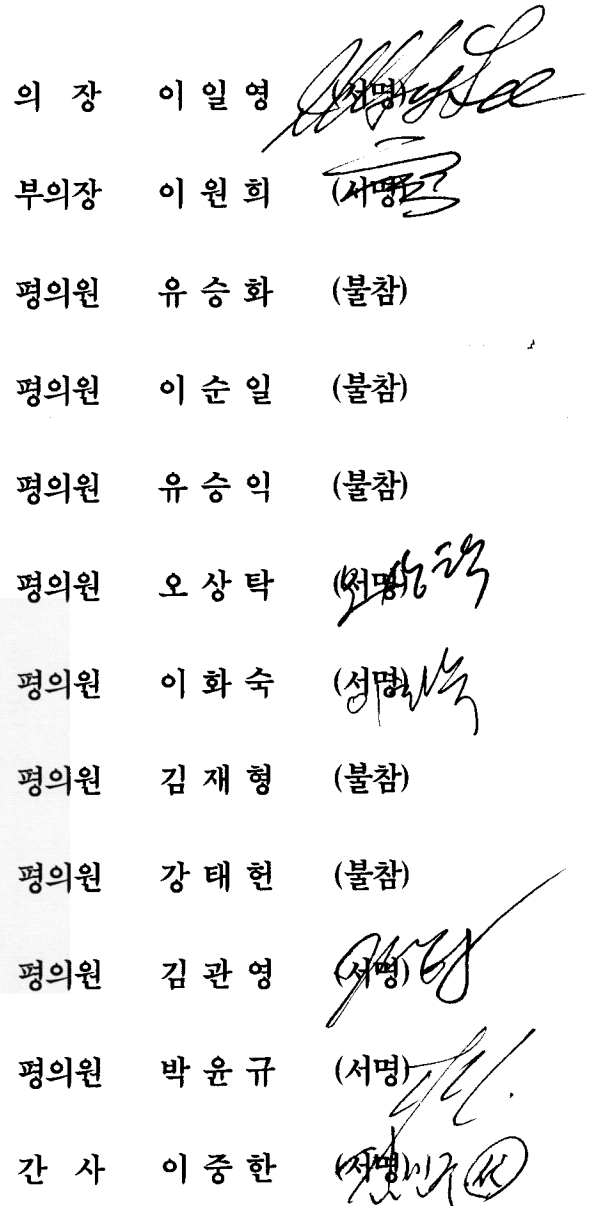 의 장 이 일 영 (서명)
부의장 이 원 희 (서명)
평의원 유 승 화 (불참)
평의원 이 순 일 (불참)
평의원 유 승 익 (불참)
평의원 오 상 탁 (서명)
평의원 이 화 숙 (서명)
평의원 김 재 형 (불참)
평의원 강 태 헌 (불참)
평의원 김 관 영 (서명)
평의원 박 윤 규 (서명)
간 사 이 중 한 (서명)